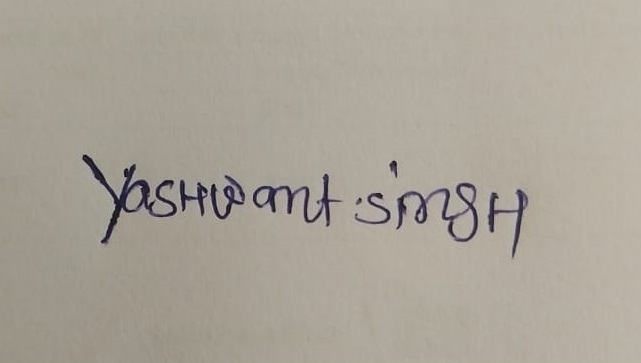 Yashwant singH